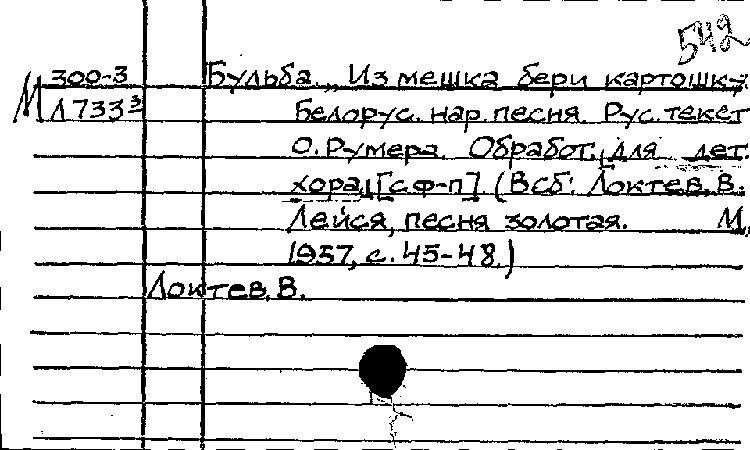 542
М 300-3 Бульба. „Из мешка бери картошку.
Л 733³ Белорус. нар. песня. Рус. текст
О. Румера. Обработ. для дет.
хора [с ф-п]. (В сб: Локтев, В.
Лейся, песня золотая. М.,
1957, с. 45-48.)
Локтев, В.